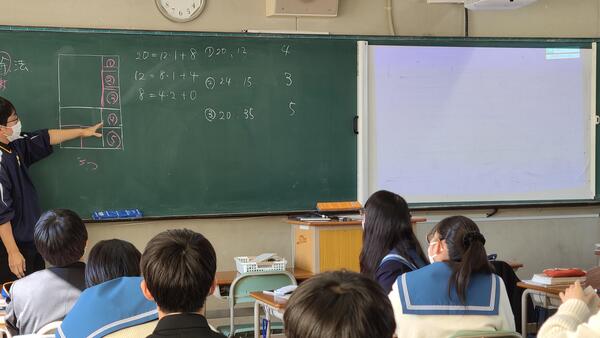 法
①
②
③
④
⑤
5つ
20=12·1+8
12=8·1+4
8=4·2+0
① 20, 12 4
② 24 15 3
③ 20 · 35 5